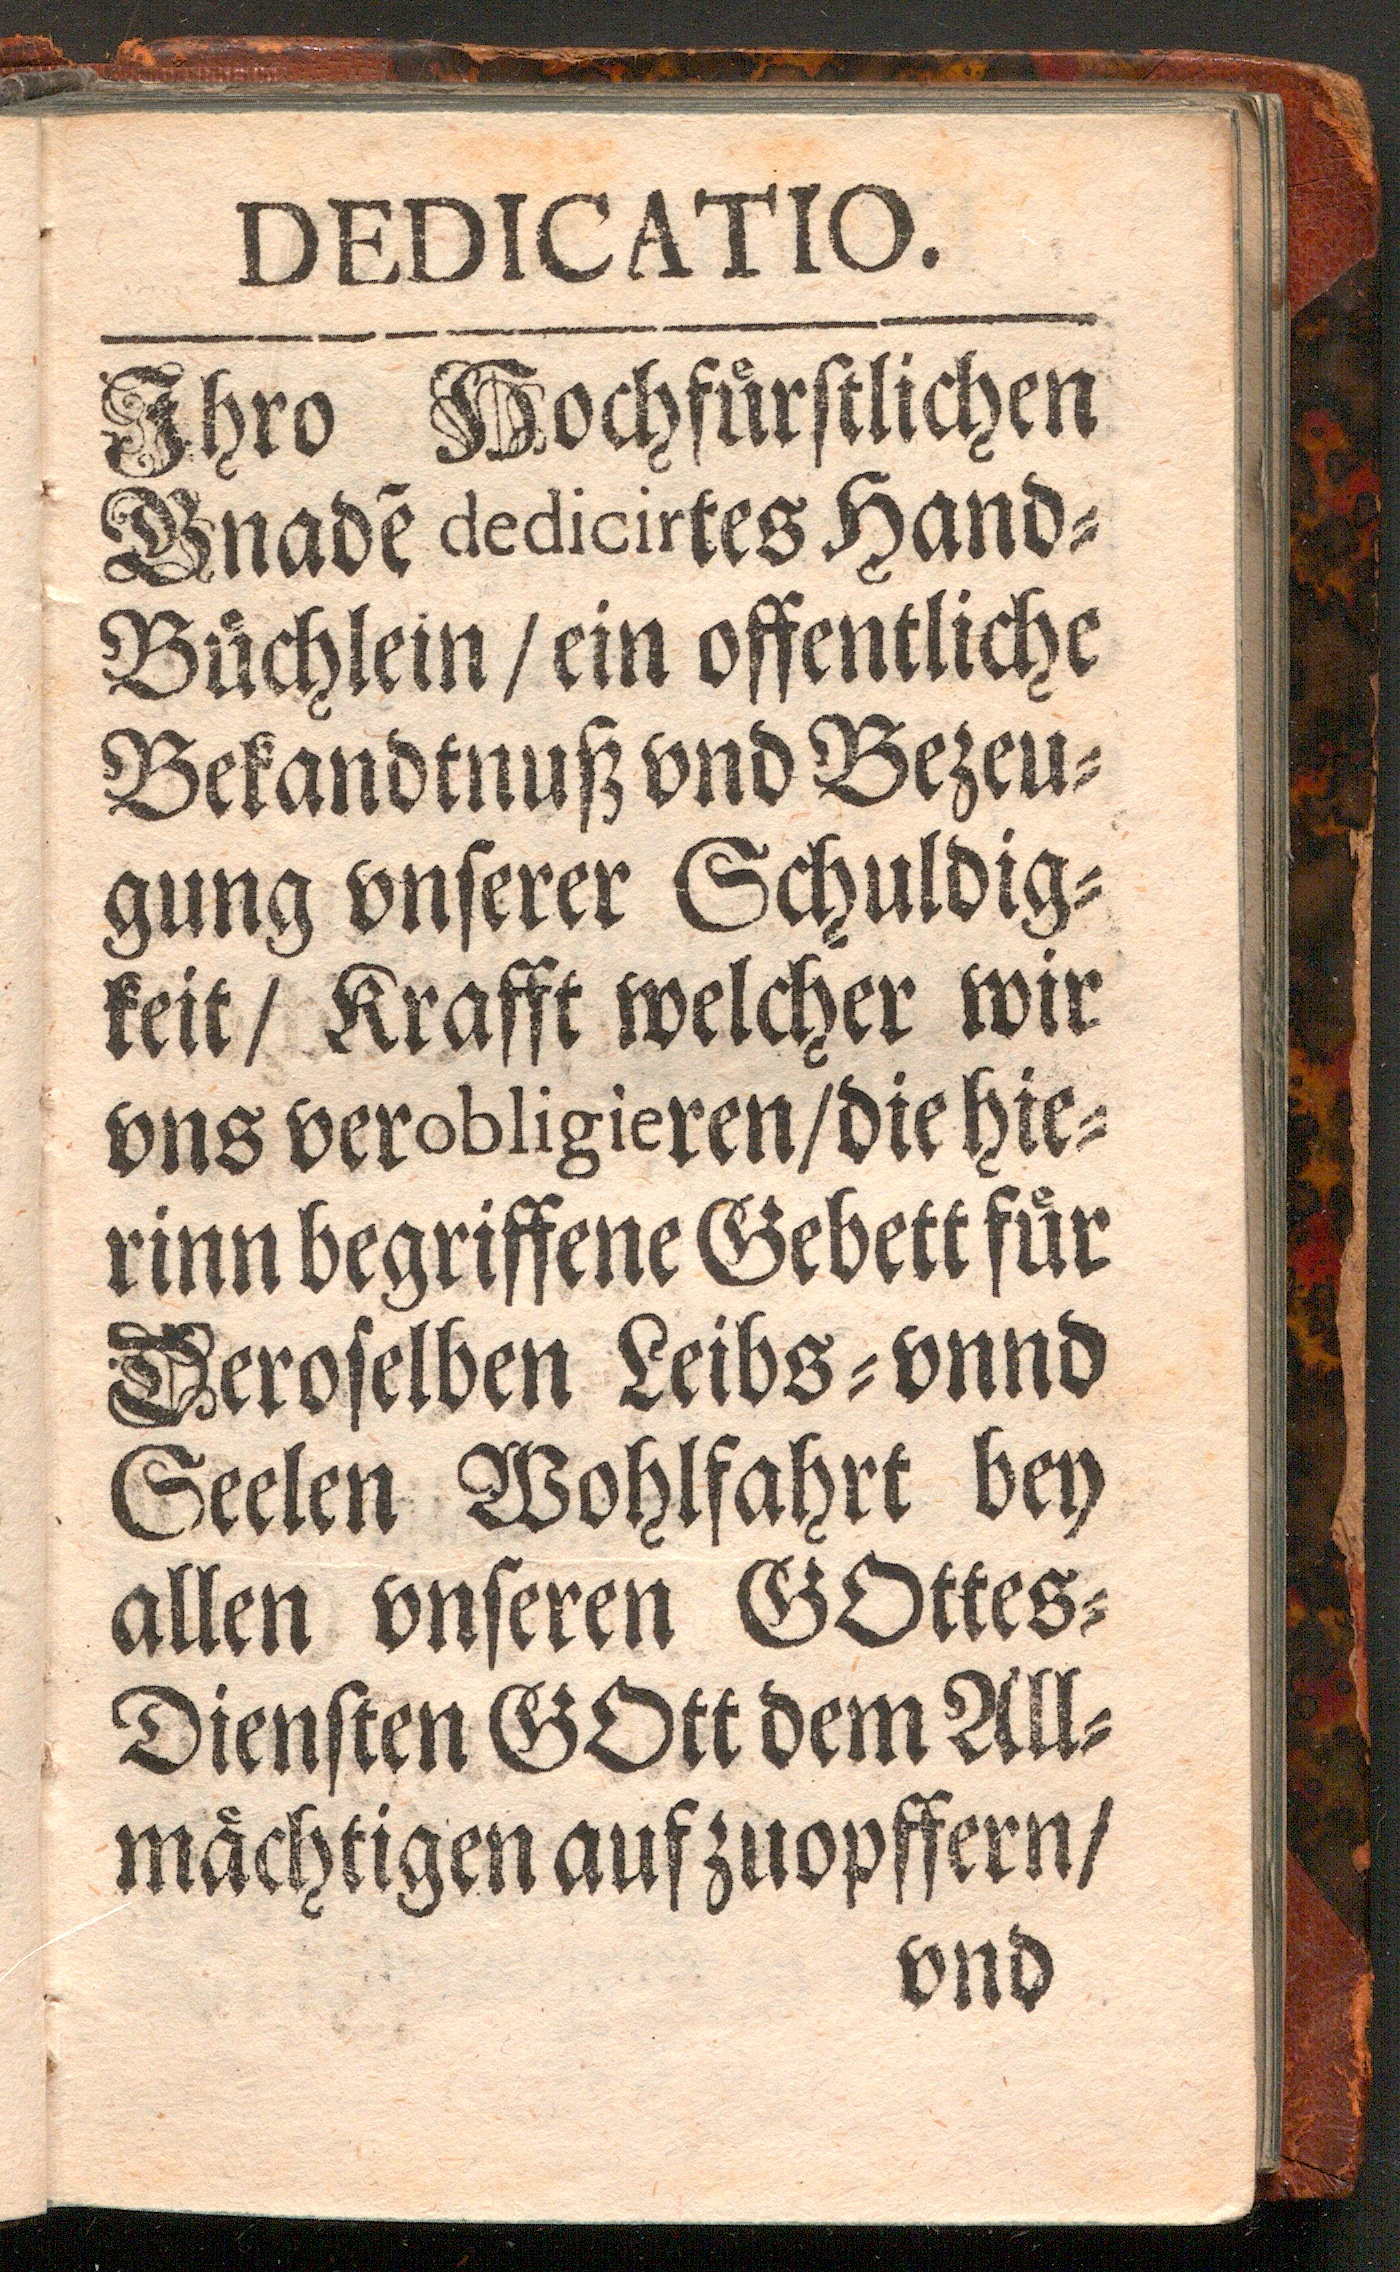 DEDICATIO.
Ihro Hochfuͤrſtlichen
Gnadẽ dedicirtes Hand⸗
Buͤchlein / ein offentliche
Bekandtnuß vnd Bezeu⸗
gung vnſerer Schuldig⸗
keit / Krafft welcher wir
vns verobligieren / die hie⸗
rinn begriffene Gebett fuͤr
Deroſelben Leibs⸗vnnd
Seelen Wohlfahrt bey
allen vnſeren GOttes⸗
Dienſten GOtt dem All⸗
maͤchtigen aufzuopffern /
vnd